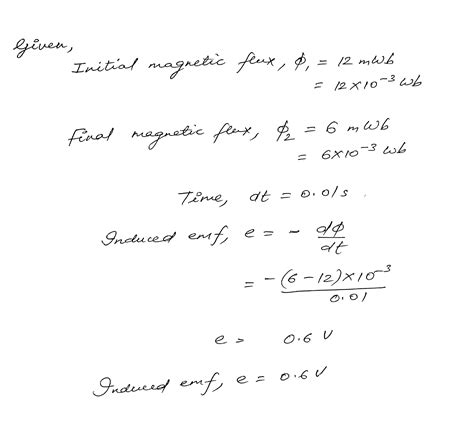 Given,
Initial magnetic flux, ϕ₁ = 12 mWb
= 12×10⁻³ Wb
Final magnetic flux, ϕ₂ = 6 mWb
= 6×10⁻³ Wb
Time, dt = 0.01s.
Induced emf, e = - dϕ/dt
= -(6-12)×10⁻³/0.01
e = 0.6 V
Induced emf, e = 0.6 V